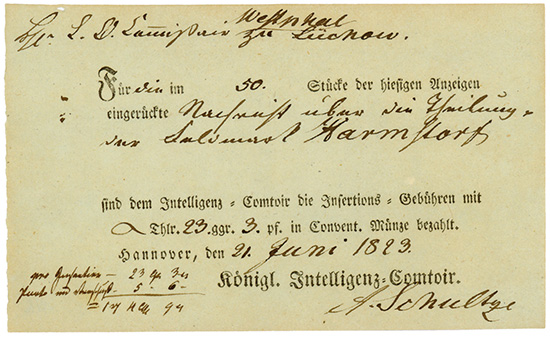 Hr. L. O. Commissair Westphal zu Lüchow.
Für die im 50. Stücke der hiesigen Anzeigen
eingerückte Nachricht über die Theilung
der Feldmark Harmstorf
sind dem Intelligenz-Comtoir die Insertions-Gebühren mit
Thlr. 23. ggr. 3. pf. in Convent. Münze bezahlt.
Hannover, den 21. Juni 1823.
Königl. Intelligenz-Comtoir.
A. Schultze
23 3
5 6